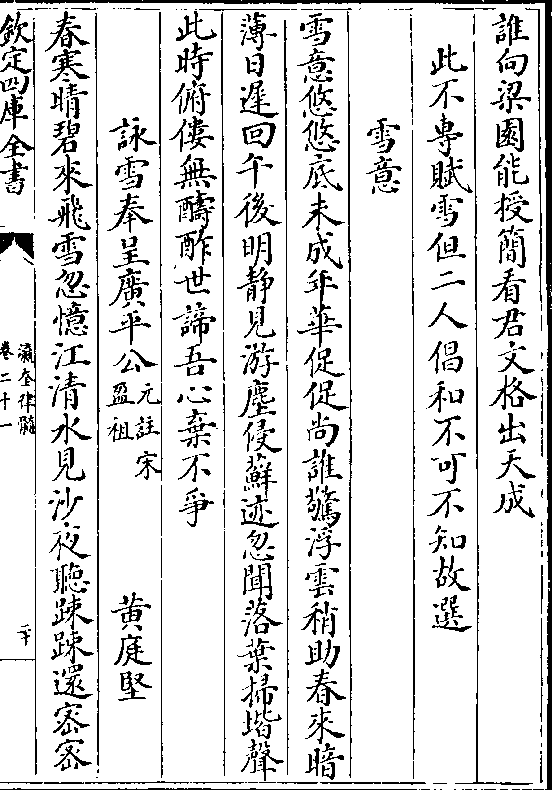 誰向梁園能授簡看君文格出天成
此不專賦雪但二人倡和不可不知故選
雪意
雪意悠悠底未成年華促促尚誰驚浮雲稍助春來暗
薄日遲回午後明静見游塵侵蘚迹忽聞落葉掃堦聲
此時俯僂無醻酢世諦吾心棄不爭
詠雪奉呈廣平公元註宋盈祖 黄庭堅
春寒晴碧來飛雪忽憶江清水見沙夜聽踈踈還宻宻
欽定四庫全書
瀛奎律髓
卷二十一
二十